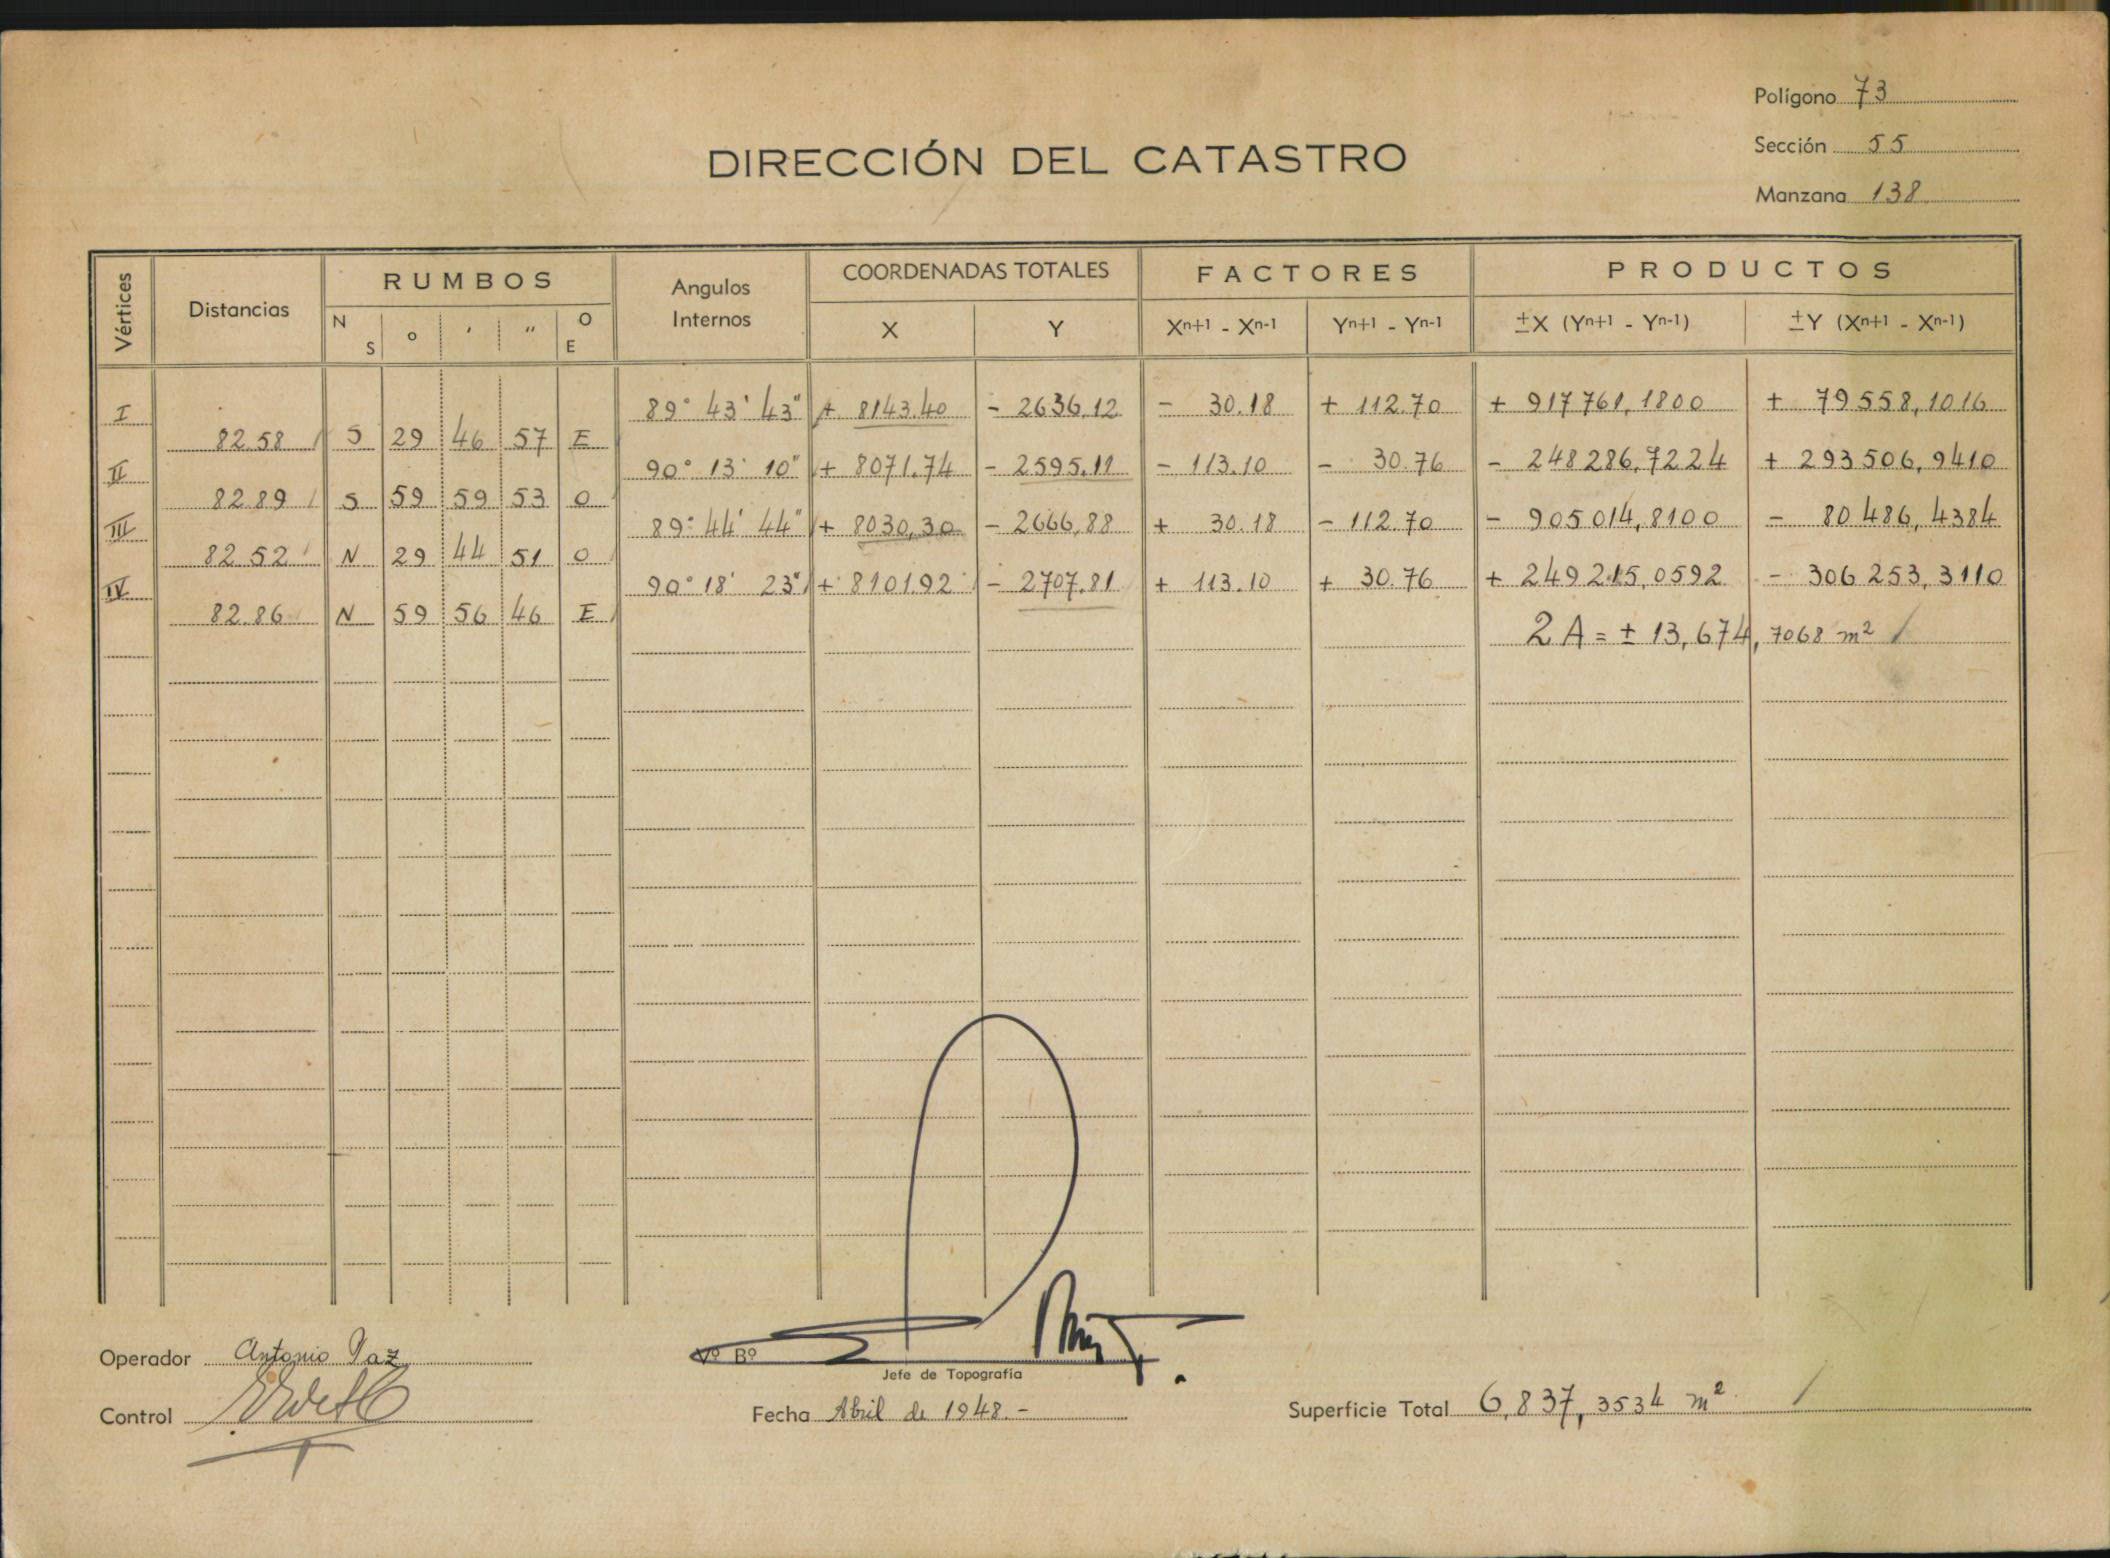 Polígono 73
DIRECCIÓN DEL CATASTRO
Sección 55
Manzana 138
Vértices Distancias RUMBOS Angulos Internos COORDENADAS TOTALES FACTORES PRODUCTOS
N S o ' " O E X Y Xn+1 - Xn-1 Yn+1 - Yn-1 ±X (Yn+1 - Yn-1) ±Y (Xn+1 - Xn-1)
I 89° 43' 43" + 8143.40 - 2636.12 - 30.18 + 112.70 + 917761,1800 + 79558,1016
82.58 S 29 46 57 E
II 90° 13' 10" + 8071.74 - 2595.11 - 113.10 - 30.76 - 248286,7224 + 293506,9410
82.89 S 59 59 53 O
III 89° 44' 44" + 8030,30 - 2666,88 + 30.18 - 112.70 - 905014,8100 - 80486,4384
82.52 N 29 44 51 O
IV 90° 18' 23" + 8101.92 - 2707.81 + 113.10 + 30.76 + 249215,0592 - 306253,3110
82.86 N 59 56 46 E
2A = ± 13,674,7068 m²
Operador Antonio Paz
Vº Bº
Jefe de Topografía
Control
Fecha Abril de 1948.-
Superficie Total 6,837,3534 m²